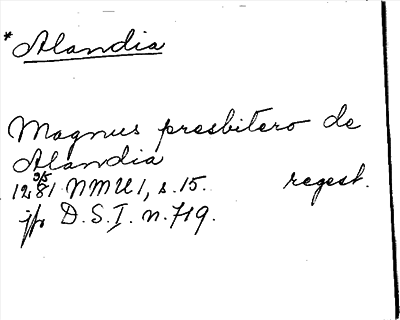 *Alandia
Magnus presbitero de
Alandia
1281 NMU 1, s. 15. regest.
jfr D.S.I. n. 719.